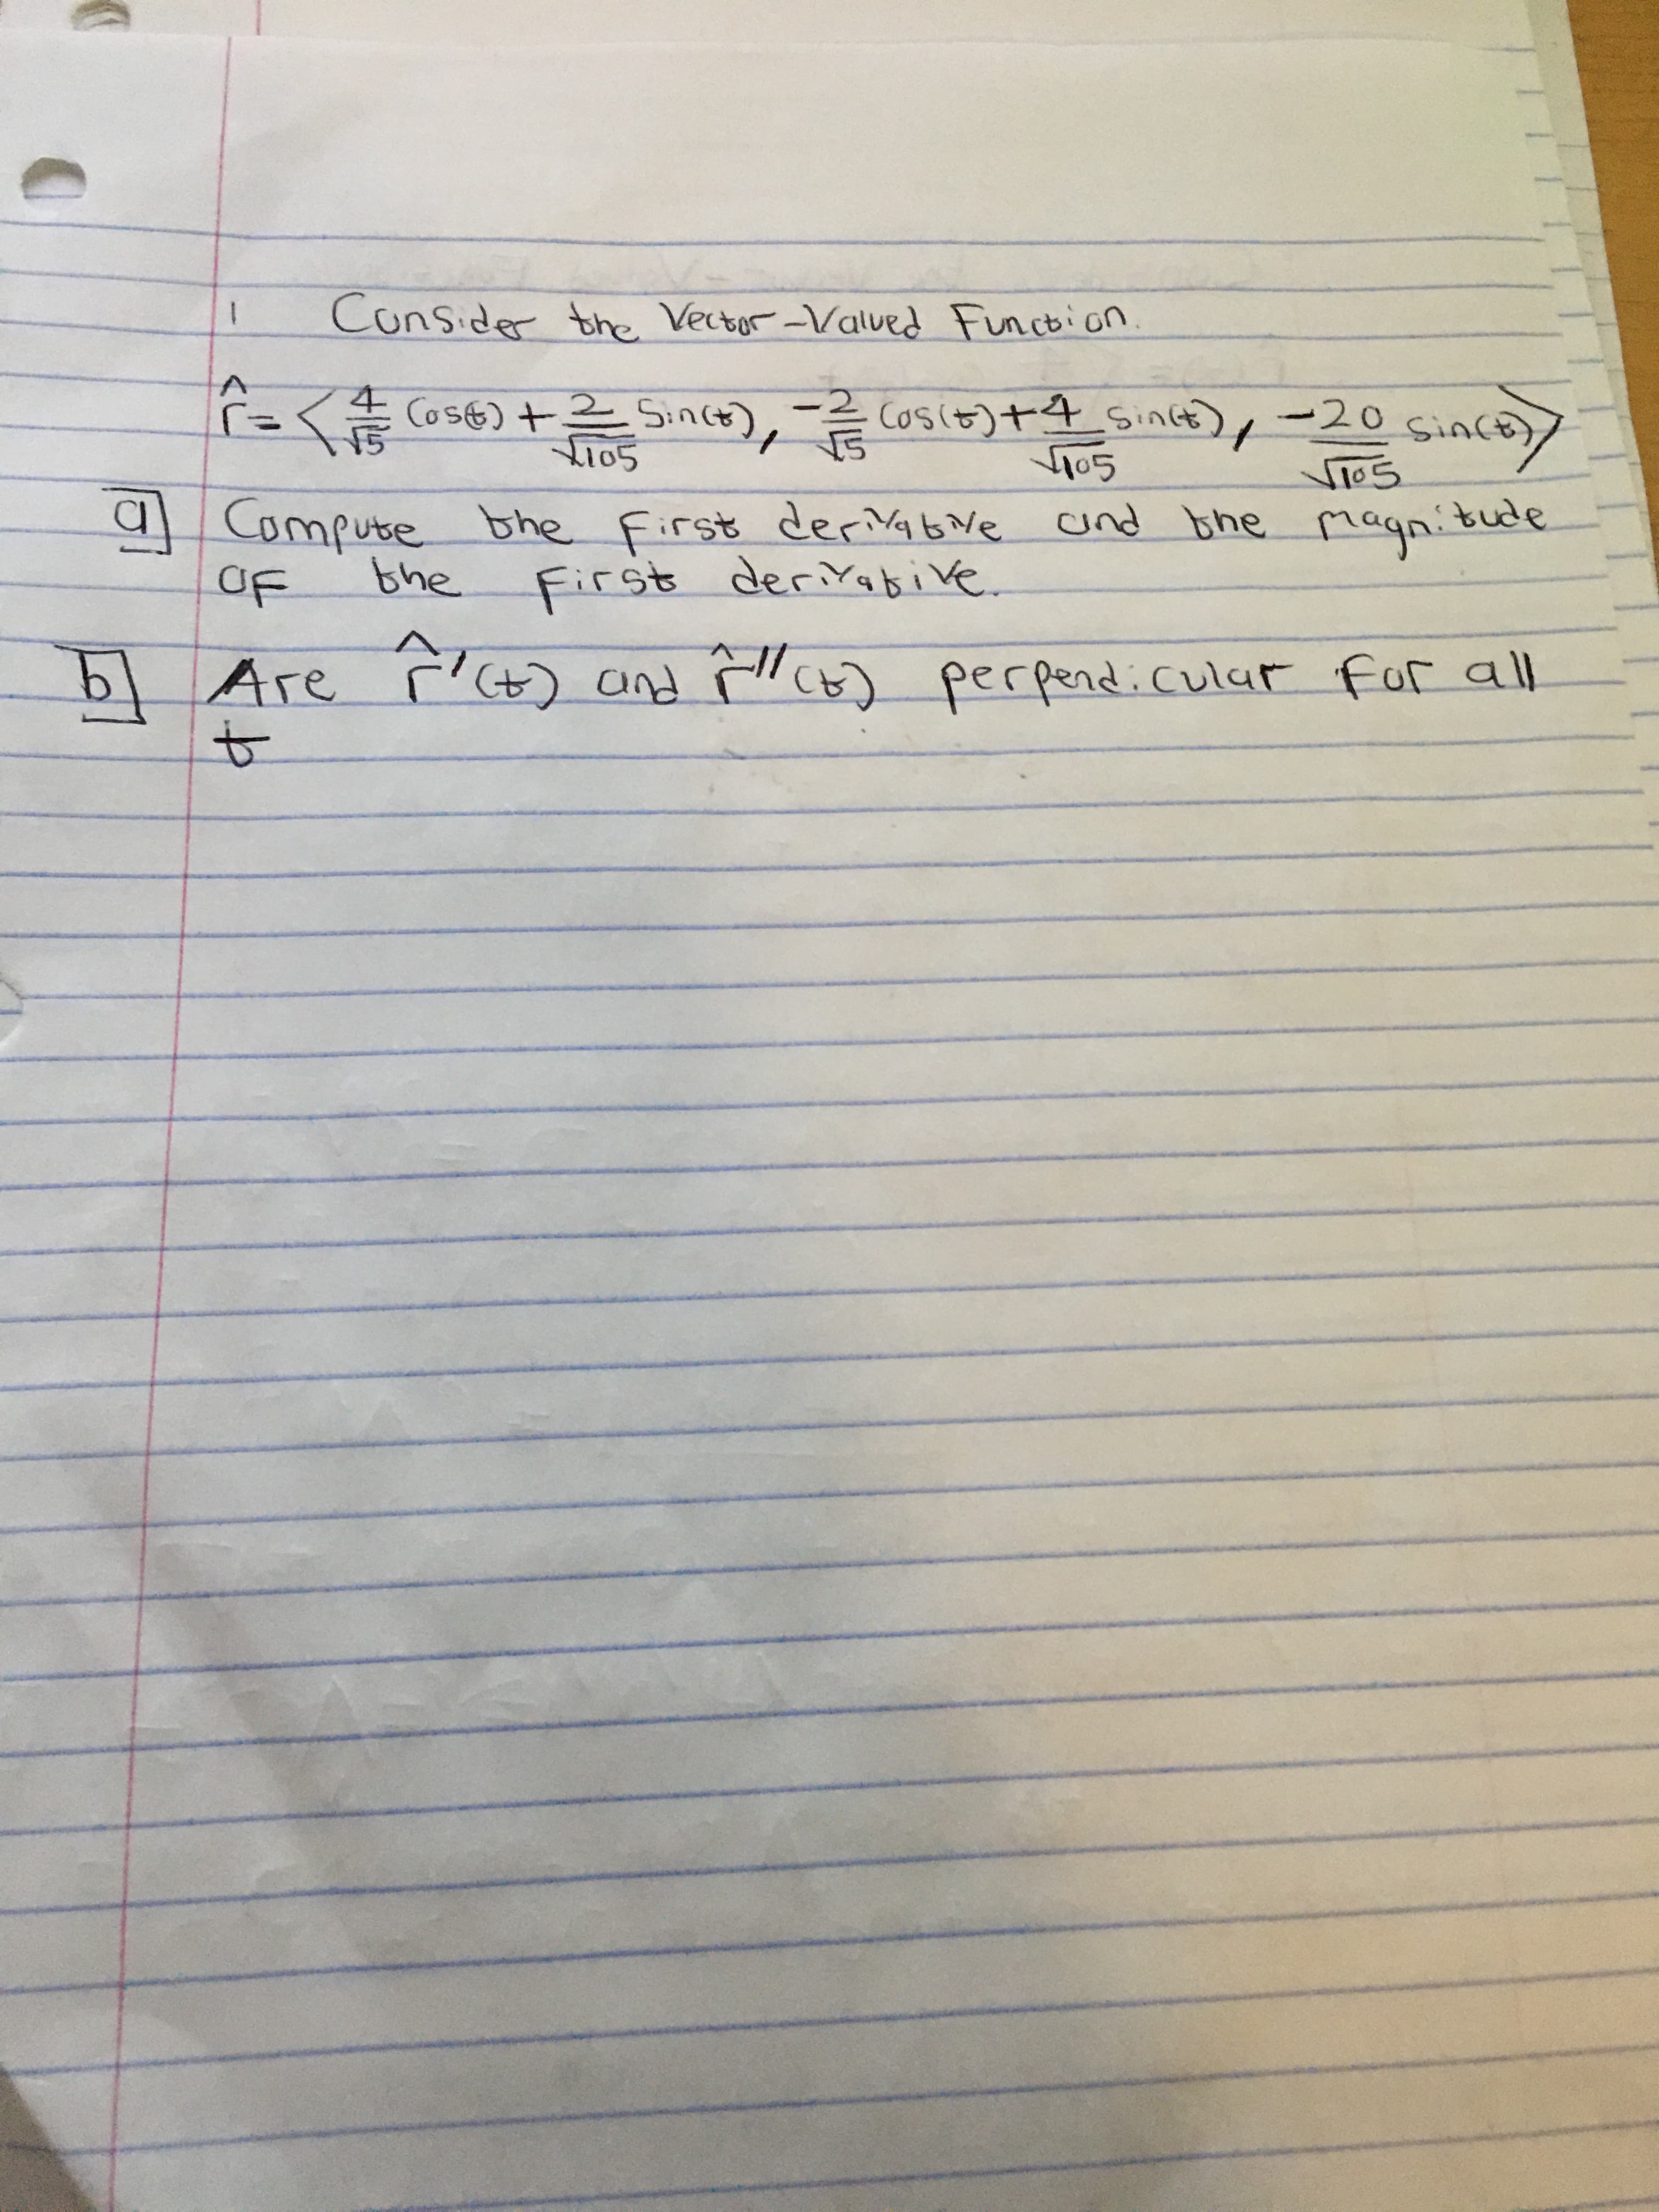 1 Consider the Vector-Valued Function.
r̂ = ⟨ 4/√5 Cos(t) + 2/√105 Sin(t), -2/√5 Cos(t) + 4/√105 sin(t), -20/√105 sin(t) ⟩
a] Compute the first derivative and the magnitude
of the first derivative.
b] Are r̂'(t) and r̂''(t) perpendicular for all
t